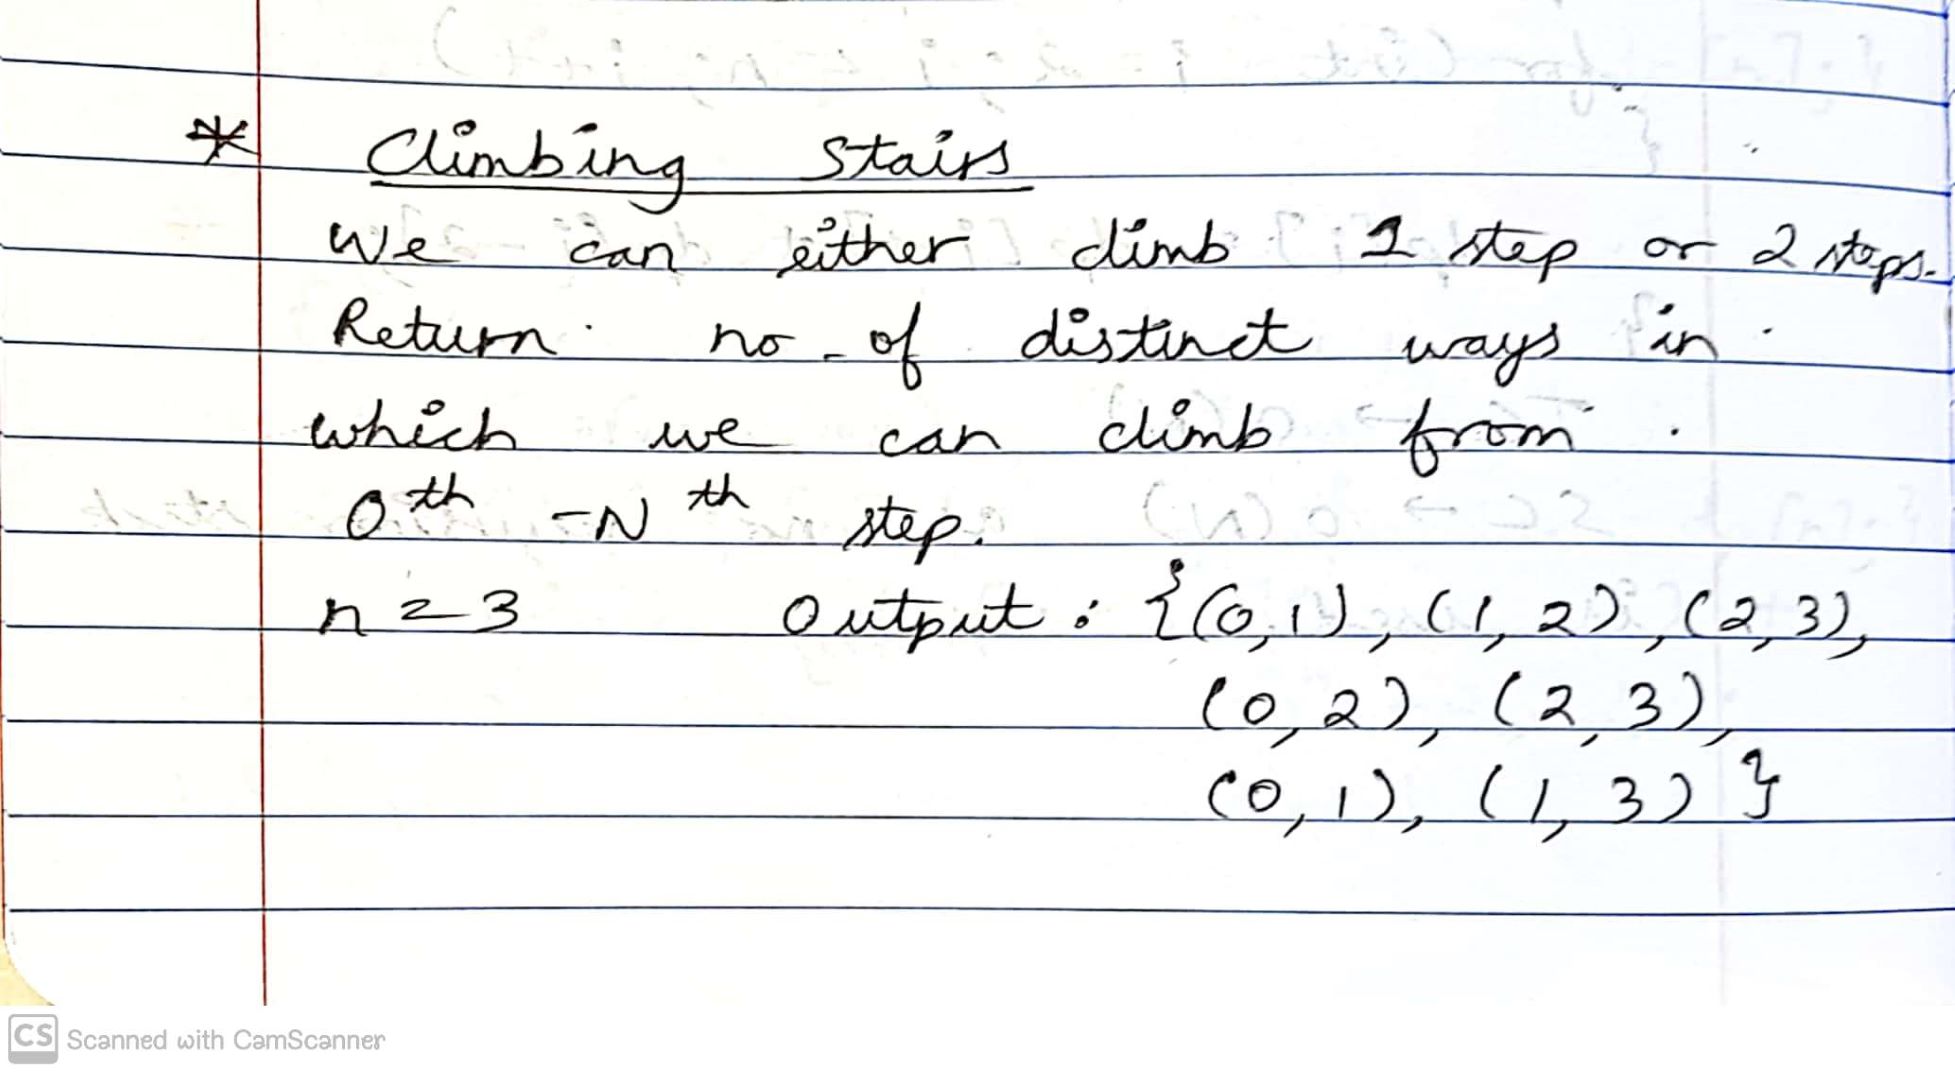 * Climbing Stairs
We can either climb 1 step or 2 steps.
Return no. of distinct ways in
which we can climb from
0th - Nth step.
n = 3 Output : {(0,1), (1,2), (2,3),
(0,2), (2,3),
(0,1), (1,3)}
CS Scanned with CamScanner